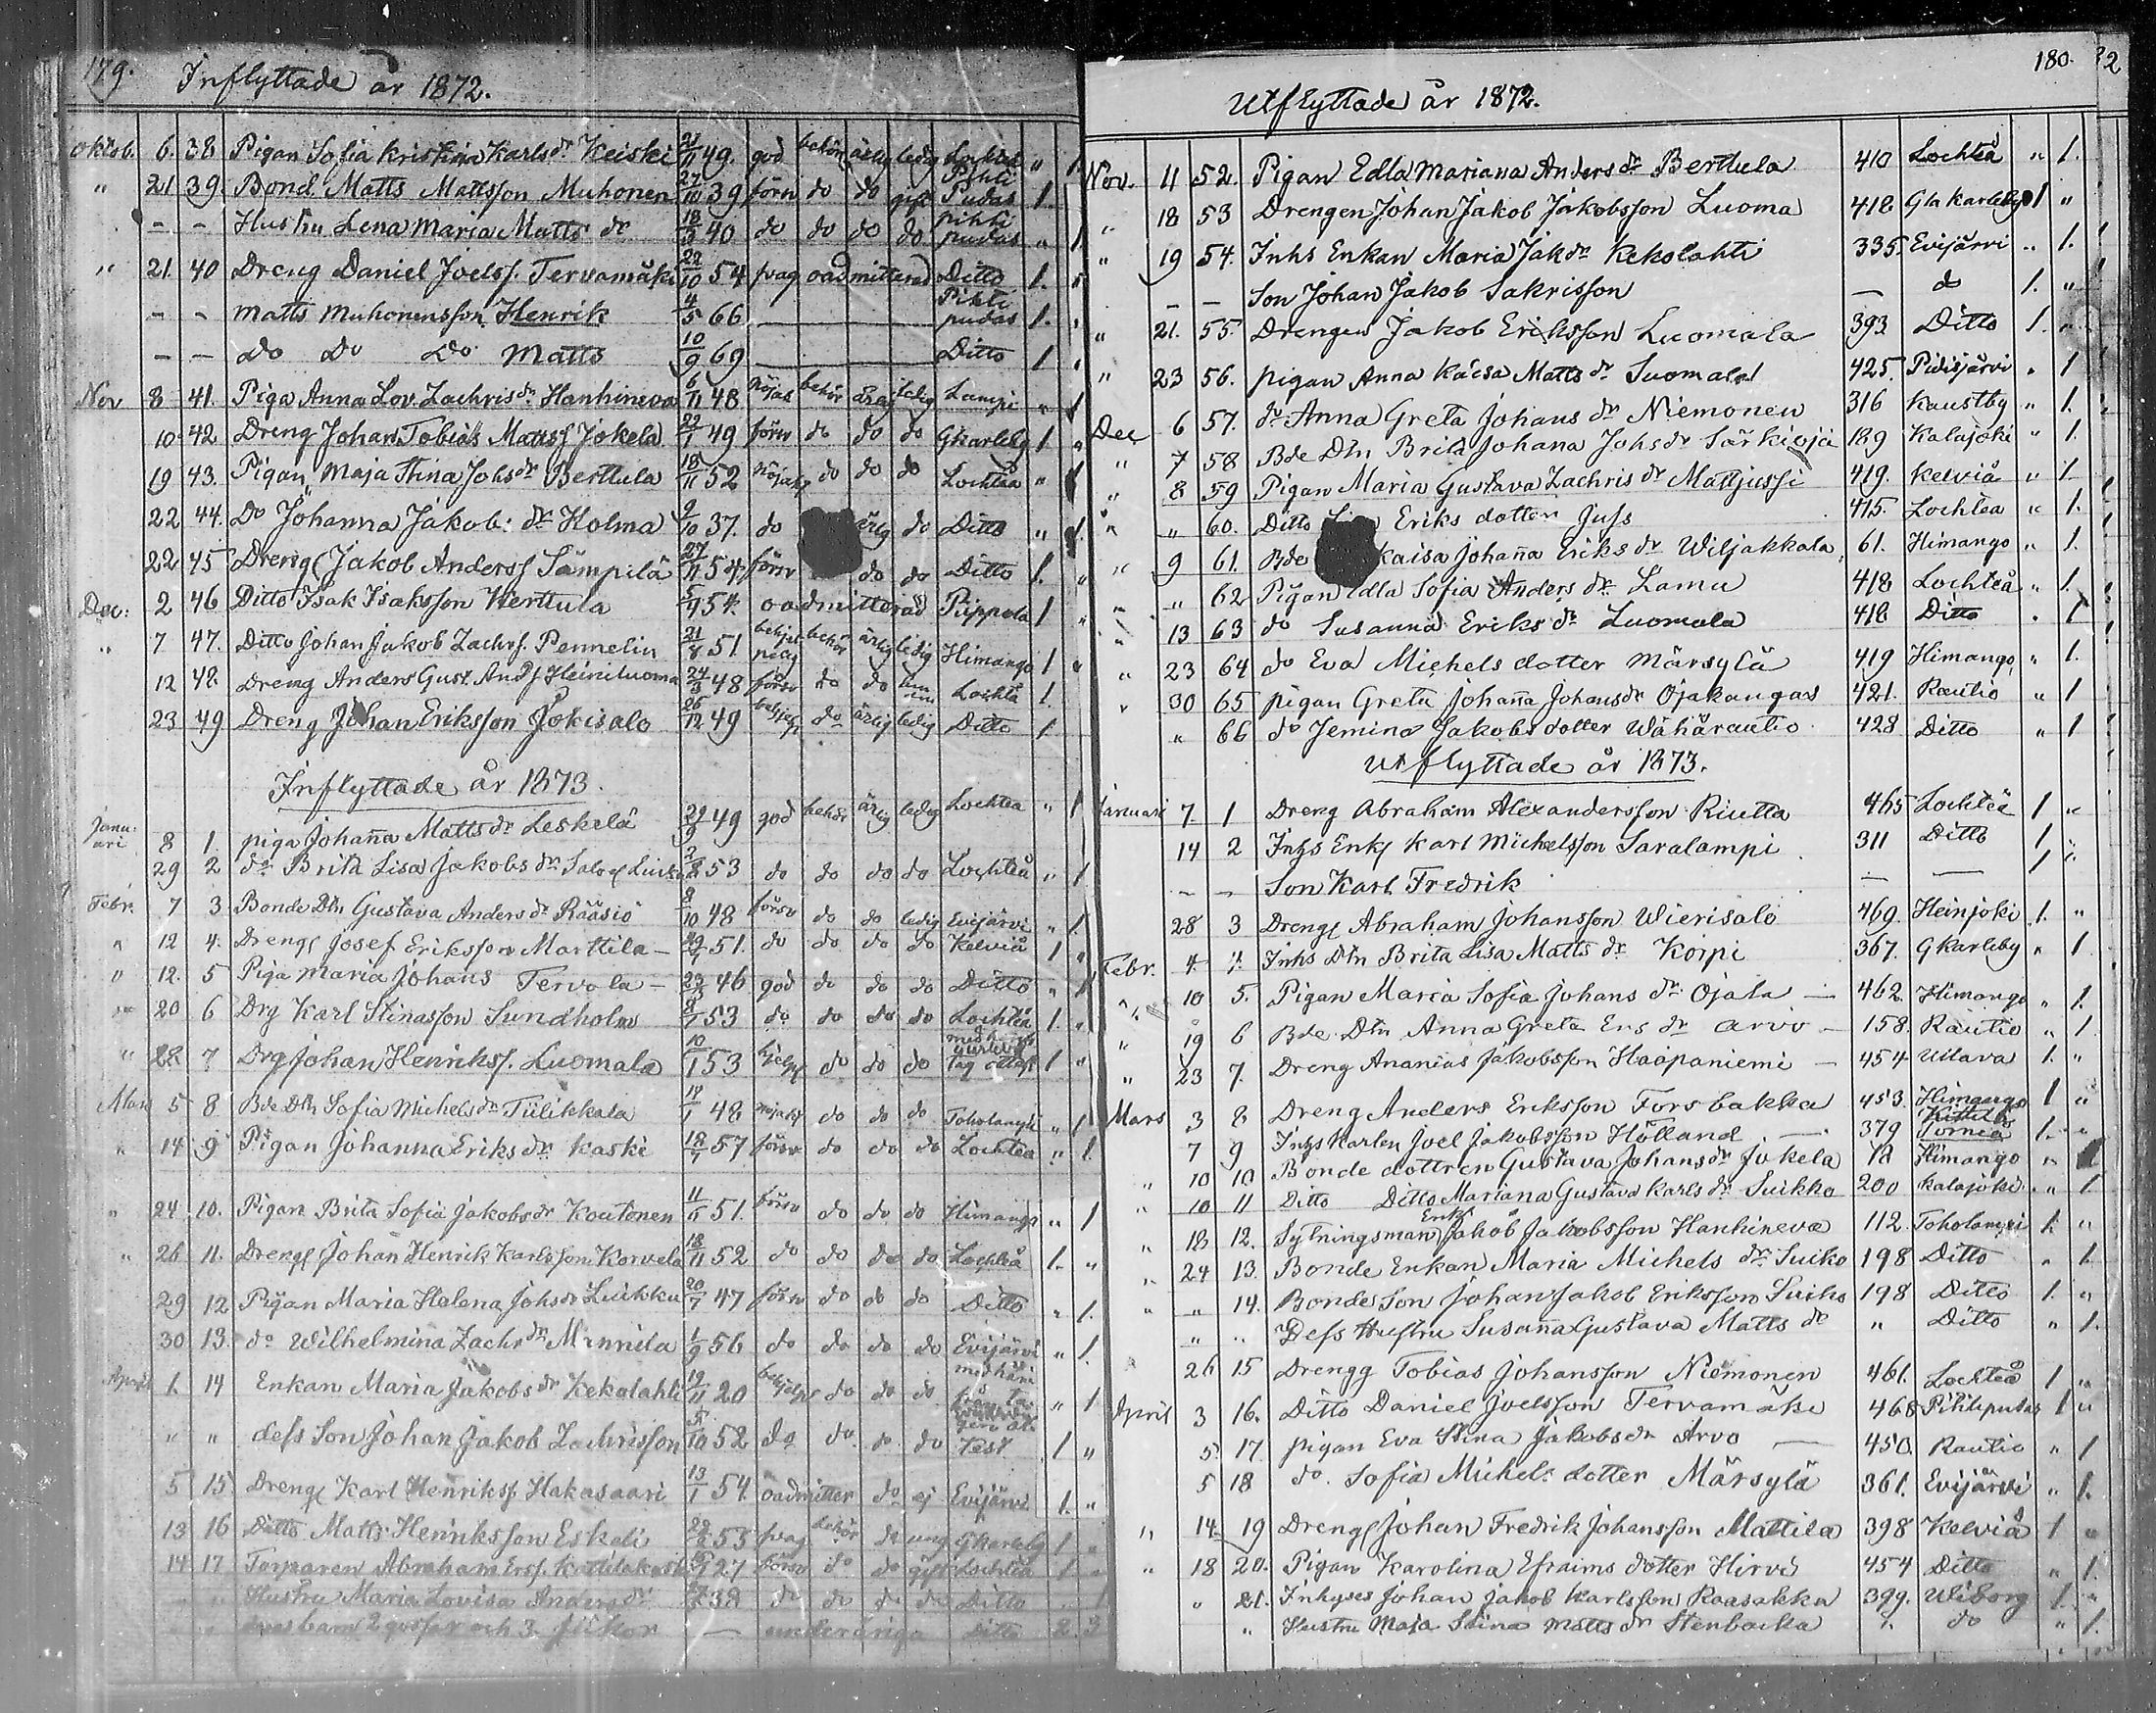 179.
Inflyttade år 1872.
Oktob. 6. 38 Pigan Sofia Kristina Karls dr Keiski 49. god behör ärlig ledig " 1
" 21 39 Bond. Matts Mattsson Muhonen 27/10 39 försv do do gift Pihti Pudas 1.
- - Hustru Lena Maria Matts dr 18/3 40 do do do do pihti pudas " 1
" 21. 40 Dreng Daniel Joelss. Tervamäki 22/10 54 svag oadmitterad Ditto 1. "
- - Matts Muhonens son Henrik 4/5 66 Pihti pudas 1.
- - do do do Matts 10/9 69 Ditto 1
Nov 8 41. Piga Anna Lov. Zachris dr Hanhineva 6/11 48 nöjak behör ärlig ledig Lampi " 1
10 42 Dreng Johan Tobias Matts Jokela 22/1 49 försv do do do Gkarleby 1 "
19 43. Pigan Maja Stina Johs dr Berttula 18/11 52 nöjakt do do do Lochteå " 1
22 44. Do Johanna Jakob: dr Holma 9/10 37. do ärlig do Ditto " 1.
22 45 Dreng Jakob Anderss Sämpilä 27/11 54 försv do do Ditto 1. "
Dec: 2 46 Ditto Isak Isaksson Werttula 54. oadmitterad Pippola 1 "
" 7 47. Ditto Johan Jakob Zachrs. Pennelin 21/8 51. behör ärlig ledig Himango 1 "
12 48. Dreng Anders Gust. And Heiniluoma 24/3 48 försv do do Lochteå 1.
23 49 Dreng Johan Eriksson Jokisalo 26/12 49 behjelp do ärlig ledig Ditto 1
Inflyttade år 1873.
Januari 8 1. piga Johanna Matts dr Leskelä 49 god behör ärlig ledig Lochteå " 1
29 2 do Brita Lisa Jakobs dr Salo 53 do do do do Lochteå " 1
Febr. 7 3 Bonde Dtn Gustava Anders dr Rääsiö 8/10 48 försv do do ledig Evijärvi " 1.
" 12 4. Dreng Josef Eriksson Marttila - 51. do do do do Kelviå 1 "
" 12. 5 Piga Maria Johans Tervola - 46 god do do do Ditto " 1
" 20 6 Drg Karl Stinasson Sundholm 8/1 53 do do do do Lochteå 1. "
" 22 7 Drg Johan Henrikss. Luomala 10/1 53 do do do 1 "
Mars 5 8 Bde Dtn Sofia Michels dr Tiilikkala 48 nöjakt do do do Toholampi " 1
" 14 9 Pigan Johanna Eriks dr Kaski 18/7 57 försv do do do Lochteå " 1.
" 24. 10. Pigan Brita Sofia Jakobs dr Koutonen 51. försv do do do Himango " 1
" 26 11. Dreng Johan Henrik Karlsson Korvela 18/11 52 do do do do Lochteå 1. "
29 12 Pigan Maria Helena Johs dr Liukku 20/7 47 försv do do do Ditto " 1.
30 13. do Wilhelmina Zachs dr Minnila 1/9 56 do do do do Evijärvi " 1.
April 1. 14 Enkan Maria Jakobs dr Kekolahti 19/11 20 behjelpl do do do " 1
" " dess Son Johan Jakob Zachrisson 52 do do do do test 1 "
5 15. Dreng Karl Henrikss Hakasaari 13/1 54. oadmitter do ej Evijärvi 1. "
13 16 Ditto Matts Henriksson Eskeli 55 svag behör do ung Gkarleby 1 "
14 17 Torparen Abraham Erss. 27 försv do do gift Lochteå 1 "
Hustru Maria Lovisa Anders dr 38 do do do do Ditto 1
deras barn 2 gossar och 3 flickor - underåriga Ditto 2. 3
180.
Utflyttade år 1872.
Nov. 11 52. Pigan Edla Mariana Anders dr Berttula 410 Lochteå " 1.
" 18 53 Drengen Johan Jakob Jakobsson Luoma 412 Gla Karleby 1 "
" 19 54. Inhs Enkan Maria Jak dr Kekolahti 335. Evijärvi " 1.
- - Son Johan Jakob Sakrisson - do 1. "
" 21. 55. Drengen Jakob Eriksson Luomala 393 Ditto 1. "
" 23 56. pigan Anna Kaisa Matts dr Suomala 425. Pidisjärvi " 1
Dec 6 57. do Anna Greta Johans dr Niemonen 316 Kaustby " 1.
" 7 58 Bde Dtn Brita Johana Johs dr Särkioja 189 Kalajoki " 1.
" 8 59 Pigan Maria Gustava Zachris dr Mattjussi 419. Kelviå " 1
" " 60. Ditto Eriks dotter Juss 415. Lochteå " 1.
" 9 61. Bde Kaisa Johanna Eriks dr Wiljakkala 61. Himango " 1.
" " 62 Pigan Edla Sofia Anders dr Lamu 418 Lochteå " 1.
" 13 63 do Susanna Eriks dr Luomala 418 Ditto " 1
" 23 64 do Eva Michels dotter Märsylä 419 Himango " 1.
" 30 65 pigan Greta Johanna Johans dr Ojakangas 421. Rautio " 1
" 66 do Jemina Jakobs dotter Wähärautio 428 Ditto " 1
Utflyttade år 1873.
Januari 7. 1 Dreng Abraham Alexandersson Riutta 465 Lochteå 1 "
14 2 Inhs Enkl Karl Michelsson Saralampi 311 Ditto 1 "
- - Son Karl Fredrik - - 1 "
28 3 Dreng Abraham Johansson Wierisalo 469. Heinjoki 1. "
Febr. 4. 4. Inhs Dtn Brita Lisa Matts dr Korpi 367. Gkarleby " 1
" 10 5. Pigan Maria Sofia Johans dr Ojala - 462. Himango " 1.
" 19 6 Bde Dtn Anna Greta Ers dr Arvo - 158. Rautio " 1
" 23 7. Dreng Ananias Jakobsson Haapaniemi - 454 Ullava 1. "
Mars 3 8 Dreng Anders Eriksson Forsbakka 453. Himango 1 "
7 9 Inhs Karlen Joel Jakobsson Hölland - 379 Kittilä Torneå 1. "
" 10 10 Bonde dottren Gustava Johans dr Jokela 12 Himango " 1
" 10 11 Ditto Ditto Mariana Gustava Karls dr Suikko 200 Kalajoki " 1.
" 18 12. Sytningsman Erik Jakob Jakobsson Hanhineva 112. Toholampi 1. "
" 24 13. Bonde Enkan Maria Michels dr Suiko 198 Ditto " 1.
" " 14. Bonde Son Johan Jakob Eriksson Suiko 198 Ditto 1. "
" " Dess Hustru Susanna Gustava Matts dr " Ditto " 1.
26 15 Drengg Tobias Johansson Niemonen 461. Lochteå 1 "
April 3 16. Ditto Daniel Joelsson Tervamäki 468 Pihtipudas 1 "
5. 17. pigan Eva Stina Jakobs dr Arvo - 450. Rautio " 1
5 18 do. Sofia Michels dotter Märsylä 361. Evijärvi " 1.
" 14. 19 Dreng Johan Fredrik Johansson Mattila 398 Kelviå 1 "
" 18 20. Pigan Karolina Efraims dotter Hirvi 454 Ditto " 1.
" 21. Inhyses Johan Jakob Karlsson Raasakka 399. Wiborg 1. "
" Hustru Maja Stina Matts dr Stenbacka " do " 1.